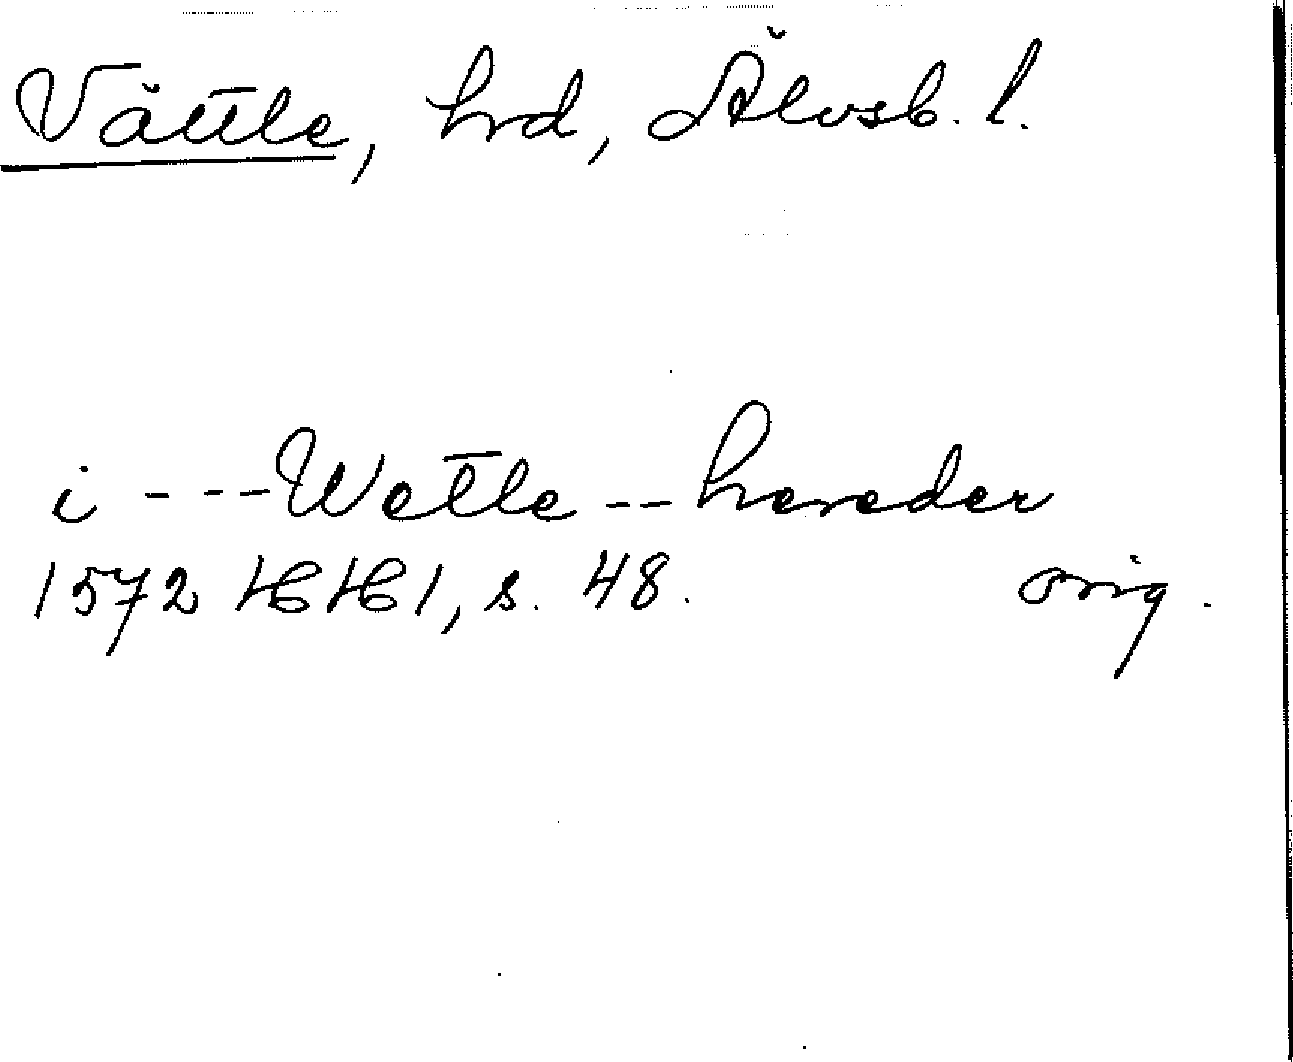 Vättle, hrd, Älvsb. l.
i ---Wetle -- hereder
1572 HH 1, s. 48. orig.